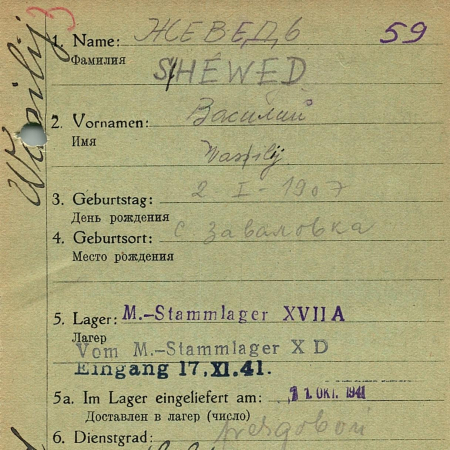 Wasilij
3
1. Name: ЖЕВЕДЬ 59
Фамилия
SHEWED
2. Vornamen: Василий
Имя
Wassilij
3. Geburtstag: 2 I - 1907
День рождения
4. Geburtsort: с Заваловка
Место рождения
5. Lager: M.-Stammlager XVII A
Лагер
Vom M.-Stammlager X D
Eingang 17.XI.41.
5a. Im Lager eingeliefert am: 11. OKT. 1941
Доставлен в лагер (число)
6. Dienstgrad: